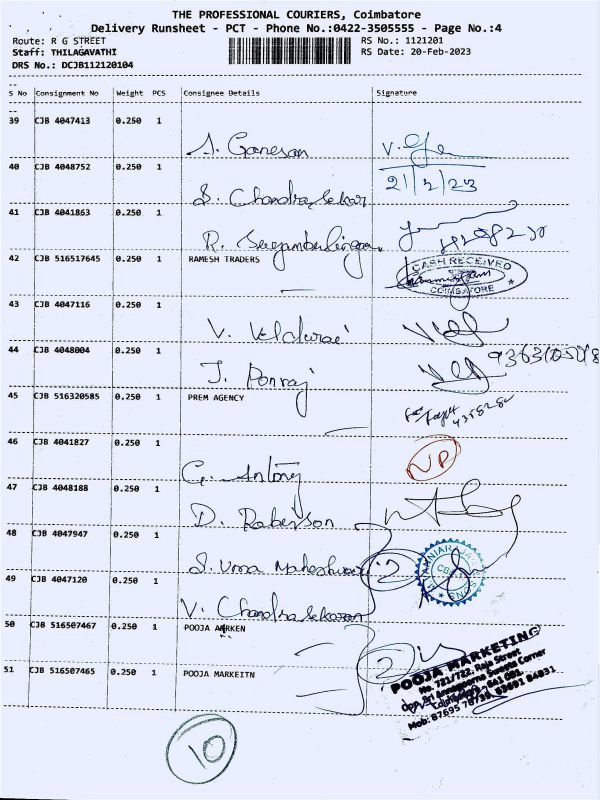 THE PROFESSIONAL COURIERS, Coimbatore
Delivery Runsheet - PCT - Phone No.:0422-3505555 - Page No.:4
Route: R G STREET RS No.: 1121201
Staff: THILAGAVATHI RS Date: 20-Feb-2023
DRS No.: DCJB112120104
S No Consignment No Weight PCS Consignee Details Signature
39 CJB 4047413 0.250 1
S. Ganesan
40 CJB 4048752 0.250 1
21/2/23
S. Chandrasekar
41 CJB 4041863 0.250 1
R.
42 CJB 516517645 0.250 1 RAMESH TRADERS
CASH RECEIVED
COIMBATORE
43 CJB 4047116 0.250 1
V. Veldurai
44 CJB 4048004 0.250 1
J. Ponraj
45 CJB 516320585 0.250 1 PREM AGENCY
46 CJB 4041827 0.250 1
NP
G. Antony
47 CJB 4048188 0.250 1
D. Raberson
48 CJB 4047947 0.250 1
S. Uma Maheshwari 2
49 CJB 4047120 0.250 1
V. Chandrasekaran
50 CJB 516507467 0.250 1 POOJA MARKEN
2
51 CJB 516507465 0.250 1 POOJA MARKEITN
POOJA MARKETING
No. 721/722, Raja Street
Corner
10